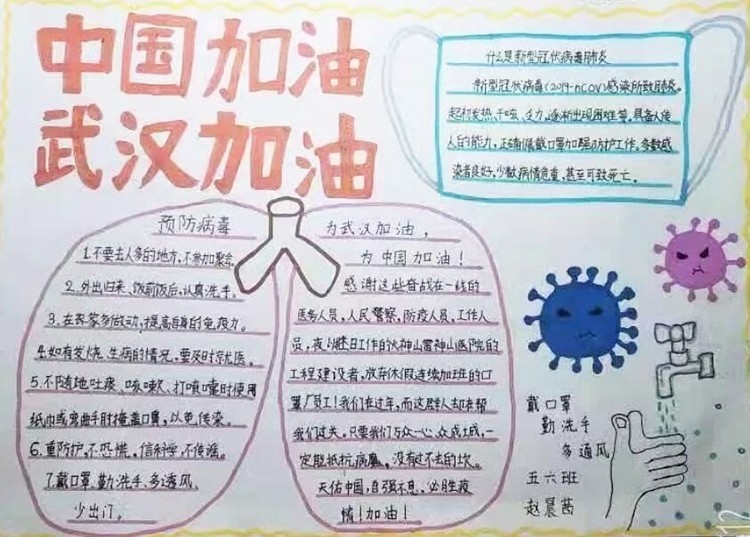 中国加油
武汉加油
什么是新型冠状病毒肺炎
新型冠状病毒(2019-nCoV)感染所致肺炎。
起初发热、干咳、乏力、逐渐出现困难等,具备人传
人的能力,正确佩戴口罩加强防护工作,多数感
染者良好,少数病情危重,甚至可致死亡。
预防病毒
1.不要去人多的地方,不参加聚会
2.外出归来、饭前饭后,认真洗手。
3.在家多做动,提高自身的免疫力。
4.如有发烧、生病的情况,要及时就医。
5.不随地吐痰、咳嗽、打喷嚏时使用
纸巾或弯曲手肘掩盖口鼻,以免传染。
6.重防护,不恐慌。信科学,不传谣。
7.戴口罩,勤洗手、多通风
少出门。
为武汉加油,
为中国加油!
感谢这些奋战在一线的
医务人员,人民警察,防疫人员,工作人
员,夜以继日工作的火神山雷神山医院的
工程建设者,放弃休假连续加班的口
罩厂员工!我们在过年,而这群人却在帮
我们过关。只要我们万众一心、众志成城,一
定能抵抗病魔。没有过不去的坎。
天佑中国,自强不息,必胜疫
情!加油!
戴口罩
勤洗手
多通风
五六班
赵晨茜